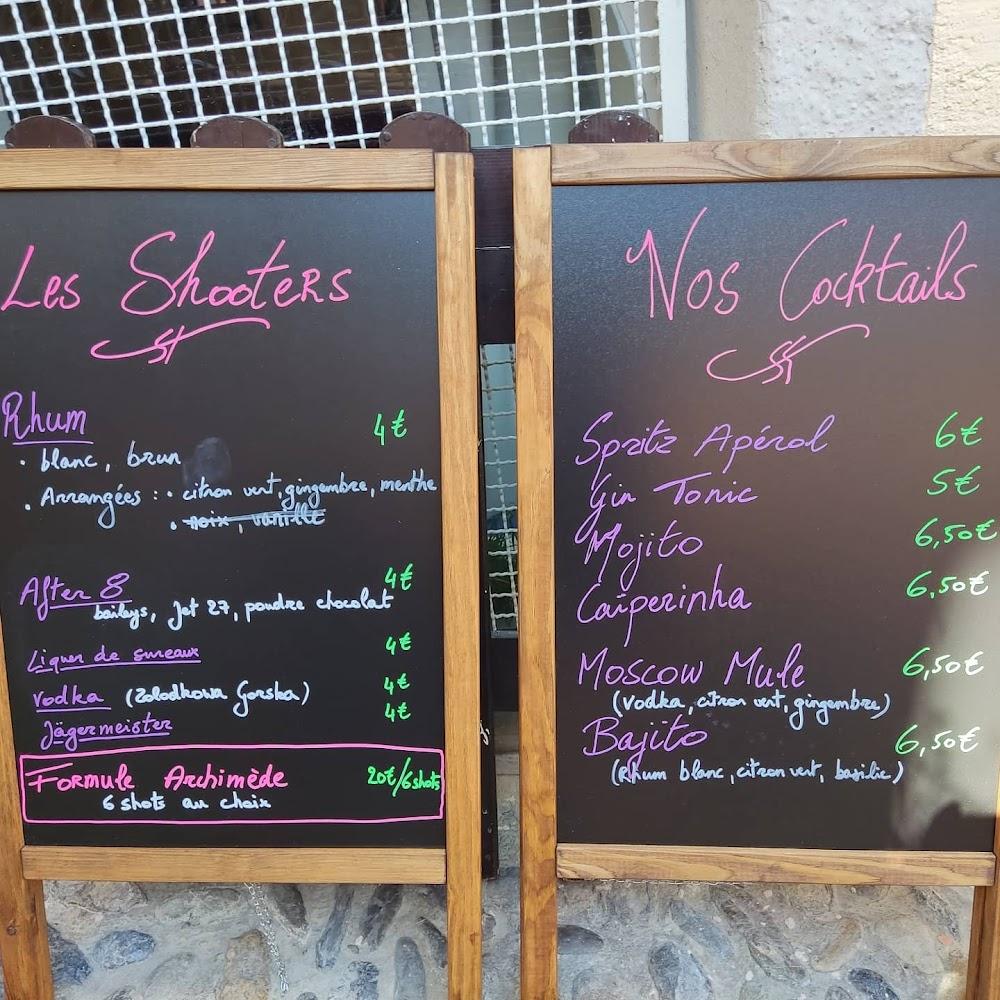 Les Shooters
Rhum 4€
• blanc, brun
• Arrangées : • citron vert, gingembre, menthe
• noix, vanille
After 8 4€
baileys, Jet 27, poudre chocolat
Liquer de sureaux 4€
Vodka (Zolodkowa Gorska) 4€
Jägermeister 4€
Formule Archimède 20€/6shots
6 shots au choix
Nos Cocktails
Spritz Apérol 6€
Gin Tonic 5€
Mojito 6,50€
Caïperinha 6,50€
Moscow Mule 6,50€
(Vodka, citron vert, gingembre)
Bajito 6,50€
(Rhum blanc, citron vert, basilic)